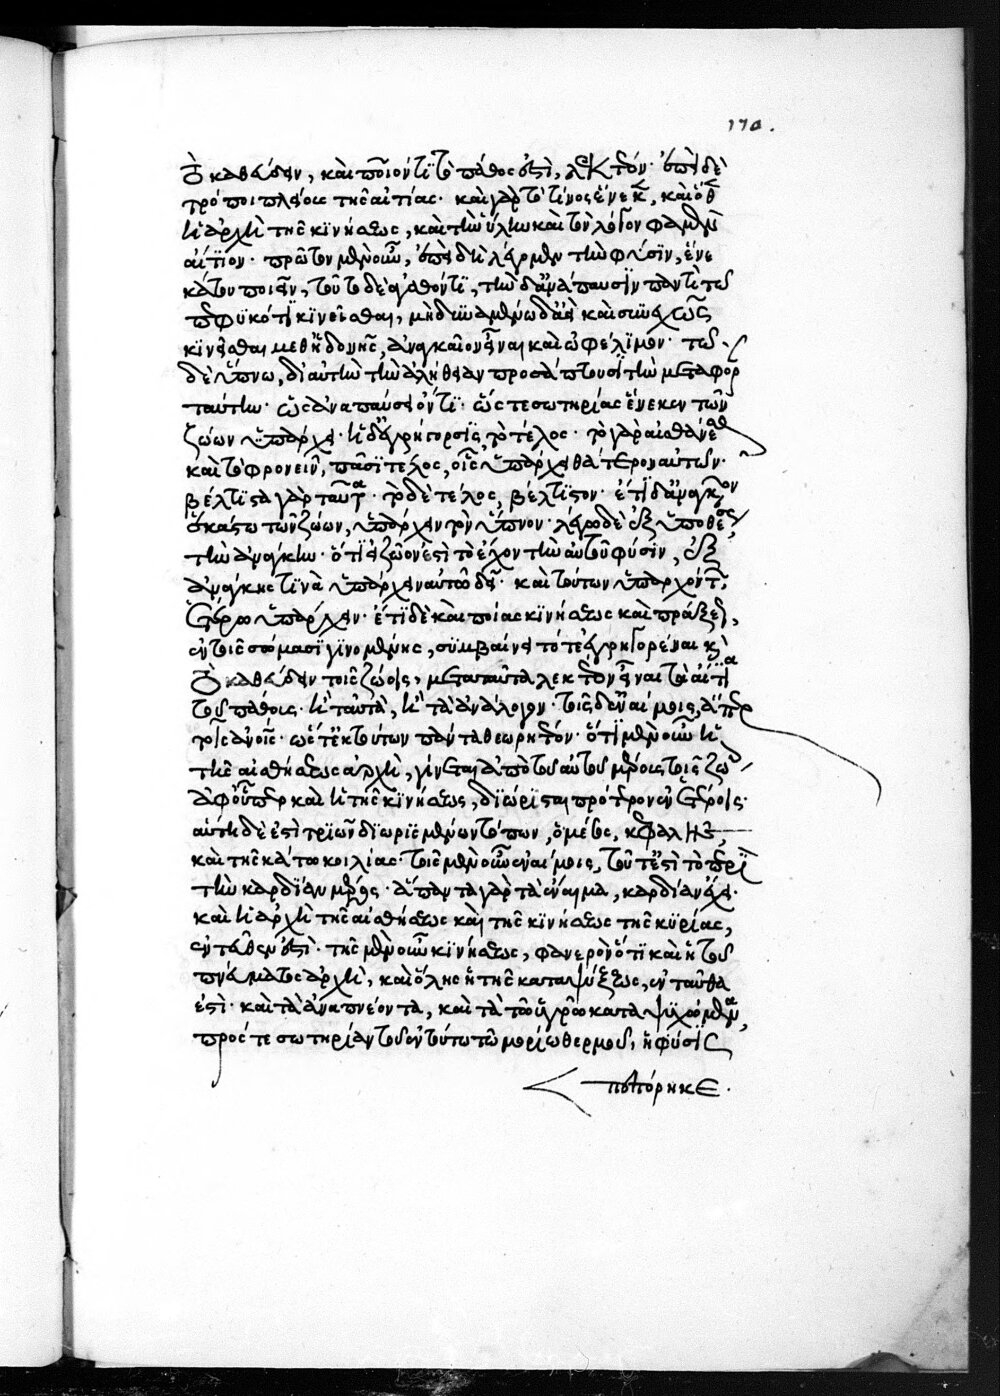 170.
τὸ καθεύδειν, καὶ ποῖόν τι τὸ πάθος ἐστὶ, λεκτέον. ἐπεὶ δὲ
τρόποι πλείους τῆς αἰτίας. καὶ γὰρ τὸ τίνος ἕνεκα, καὶ ὅθεν
ἡ ἀρχὴ τῆς κινήσεως, καὶ τὴν ὕλην καὶ τὸν λόγον φαμὲν
αἴτιον. πρῶτον μὲν οὖν, ἐπειδὴ λέγομεν τὴν φύσιν, ἕνε
κά του ποιεῖν, τοῦτο δὲ ἀγαθόν τι, τὴν δ' ἀνάπαυσιν παντὶ τῷ
πεφυκότι κινεῖσθαι, μὴ δυναμένῳ δ' ἀεὶ καὶ συνεχῶς
κινεῖσθαι μεθ' ἡδονῆς, ἀναγκαῖον εἶναι καὶ ὠφέλιμον. τῷ
δὲ ὕπνῳ, δι' αὐτὴν τὴν ἀλήθειαν προσάπτουσι τὴν μεταφορὰν
ταύτην. ὡς ἀναπαύσει ὄντι. ὥστε σωτηρίας ἕνεκεν τῶν
ζώων ὑπάρχει. ἡ δ' ἐγρήγορσις τὸ τέλος. τὸ γὰρ αἰσθάνεσθαι
καὶ τὸ φρονεῖν, πᾶσι τέλος, οἷς ὑπάρχει θάτερον αὐτῶν.
βέλτιστα γὰρ ταῦτα. τὸ δὲ τέλος, βέλτιστον. ἔτι δ' ἀναγκαῖον
ἑκάστῳ τῶν ζώων, ὑπάρχειν τὸν ὕπνον. λέγω δὲ ἐξ ὑποθέσεως
τὴν ἀνάγκην. ὅτι εἰ ζῶον ἐστὶ τὸ ἔχον τὴν αὑτοῦ φύσιν, ἐξ
ἀνάγκης τινὰ ὑπάρχειν αὐτῷ δεῖ. καὶ τούτων ὑπαρχόντων,
ἕτερα ὑπάρχειν. ἔτι δὲ καὶ ποίας κινήσεως καὶ πράξεως,
ἐν τοῖς σώμασι γινομένης, συμβαίνει τό τε ἐγρηγορέναι καὶ
τὸ καθεύδειν τοῖς ζώοις, μετὰ ταῦτα λεκτέον εἶναι τὰ αἴτια
τοῦ πάθους. ἢ ταὐτὰ, ἢ τὰ ἀνάλογον. τοῖς δ' ἐναίμοις, ἅπερ
τοῖς ἀναίμοις. ὥστε ἐκ τούτων πάντα θεωρητέον. ὅτι μὲν οὖν ἡ
τῆς αἰσθήσεως ἀρχὴ, γίνεται ἀπὸ τοῦ αὐτοῦ μέρους τοῖς ζώοις
ἀφ' οὗπερ καὶ ἡ τῆς κινήσεως, διώρισται πρότερον ἐν ἑτέροις.
αὕτη δὲ ἐστὶ τριῶν διωρισμένων τόπων, ὁ μέσος, κεφαλῆς,
καὶ τῆς κάτω κοιλίας. τοῖς μὲν οὖν ἐναίμοις, τοῦτ' ἐστὶ τὸ περὶ
τὴν καρδίαν μέρος. ἅπαντα γὰρ τὰ ἔναιμα, καρδίαν ἔχει.
καὶ ἡ ἀρχὴ τῆς αἰσθήσεως καὶ τῆς κινήσεως τῆς κυρίας,
ἐντεῦθεν ἐστὶ. τῆς μὲν οὖν κινήσεως, φανερὸν ὅτι καὶ ἡ τοῦ
πνεύματος ἀρχὴ, καὶ ὅλης ἡ τῆς καταψύξεως, ἐνταῦθα
ἐστὶ. καὶ τὰ ἀναπνέοντα, καὶ τὰ τῷ ὑγρῷ καταψυχόμενα,
πρός τε σωτηρίαν τοῦ ἐν τούτῳ τῷ μορίῳ θερμοῦ, ἡ φύσις
πεπόρικε.